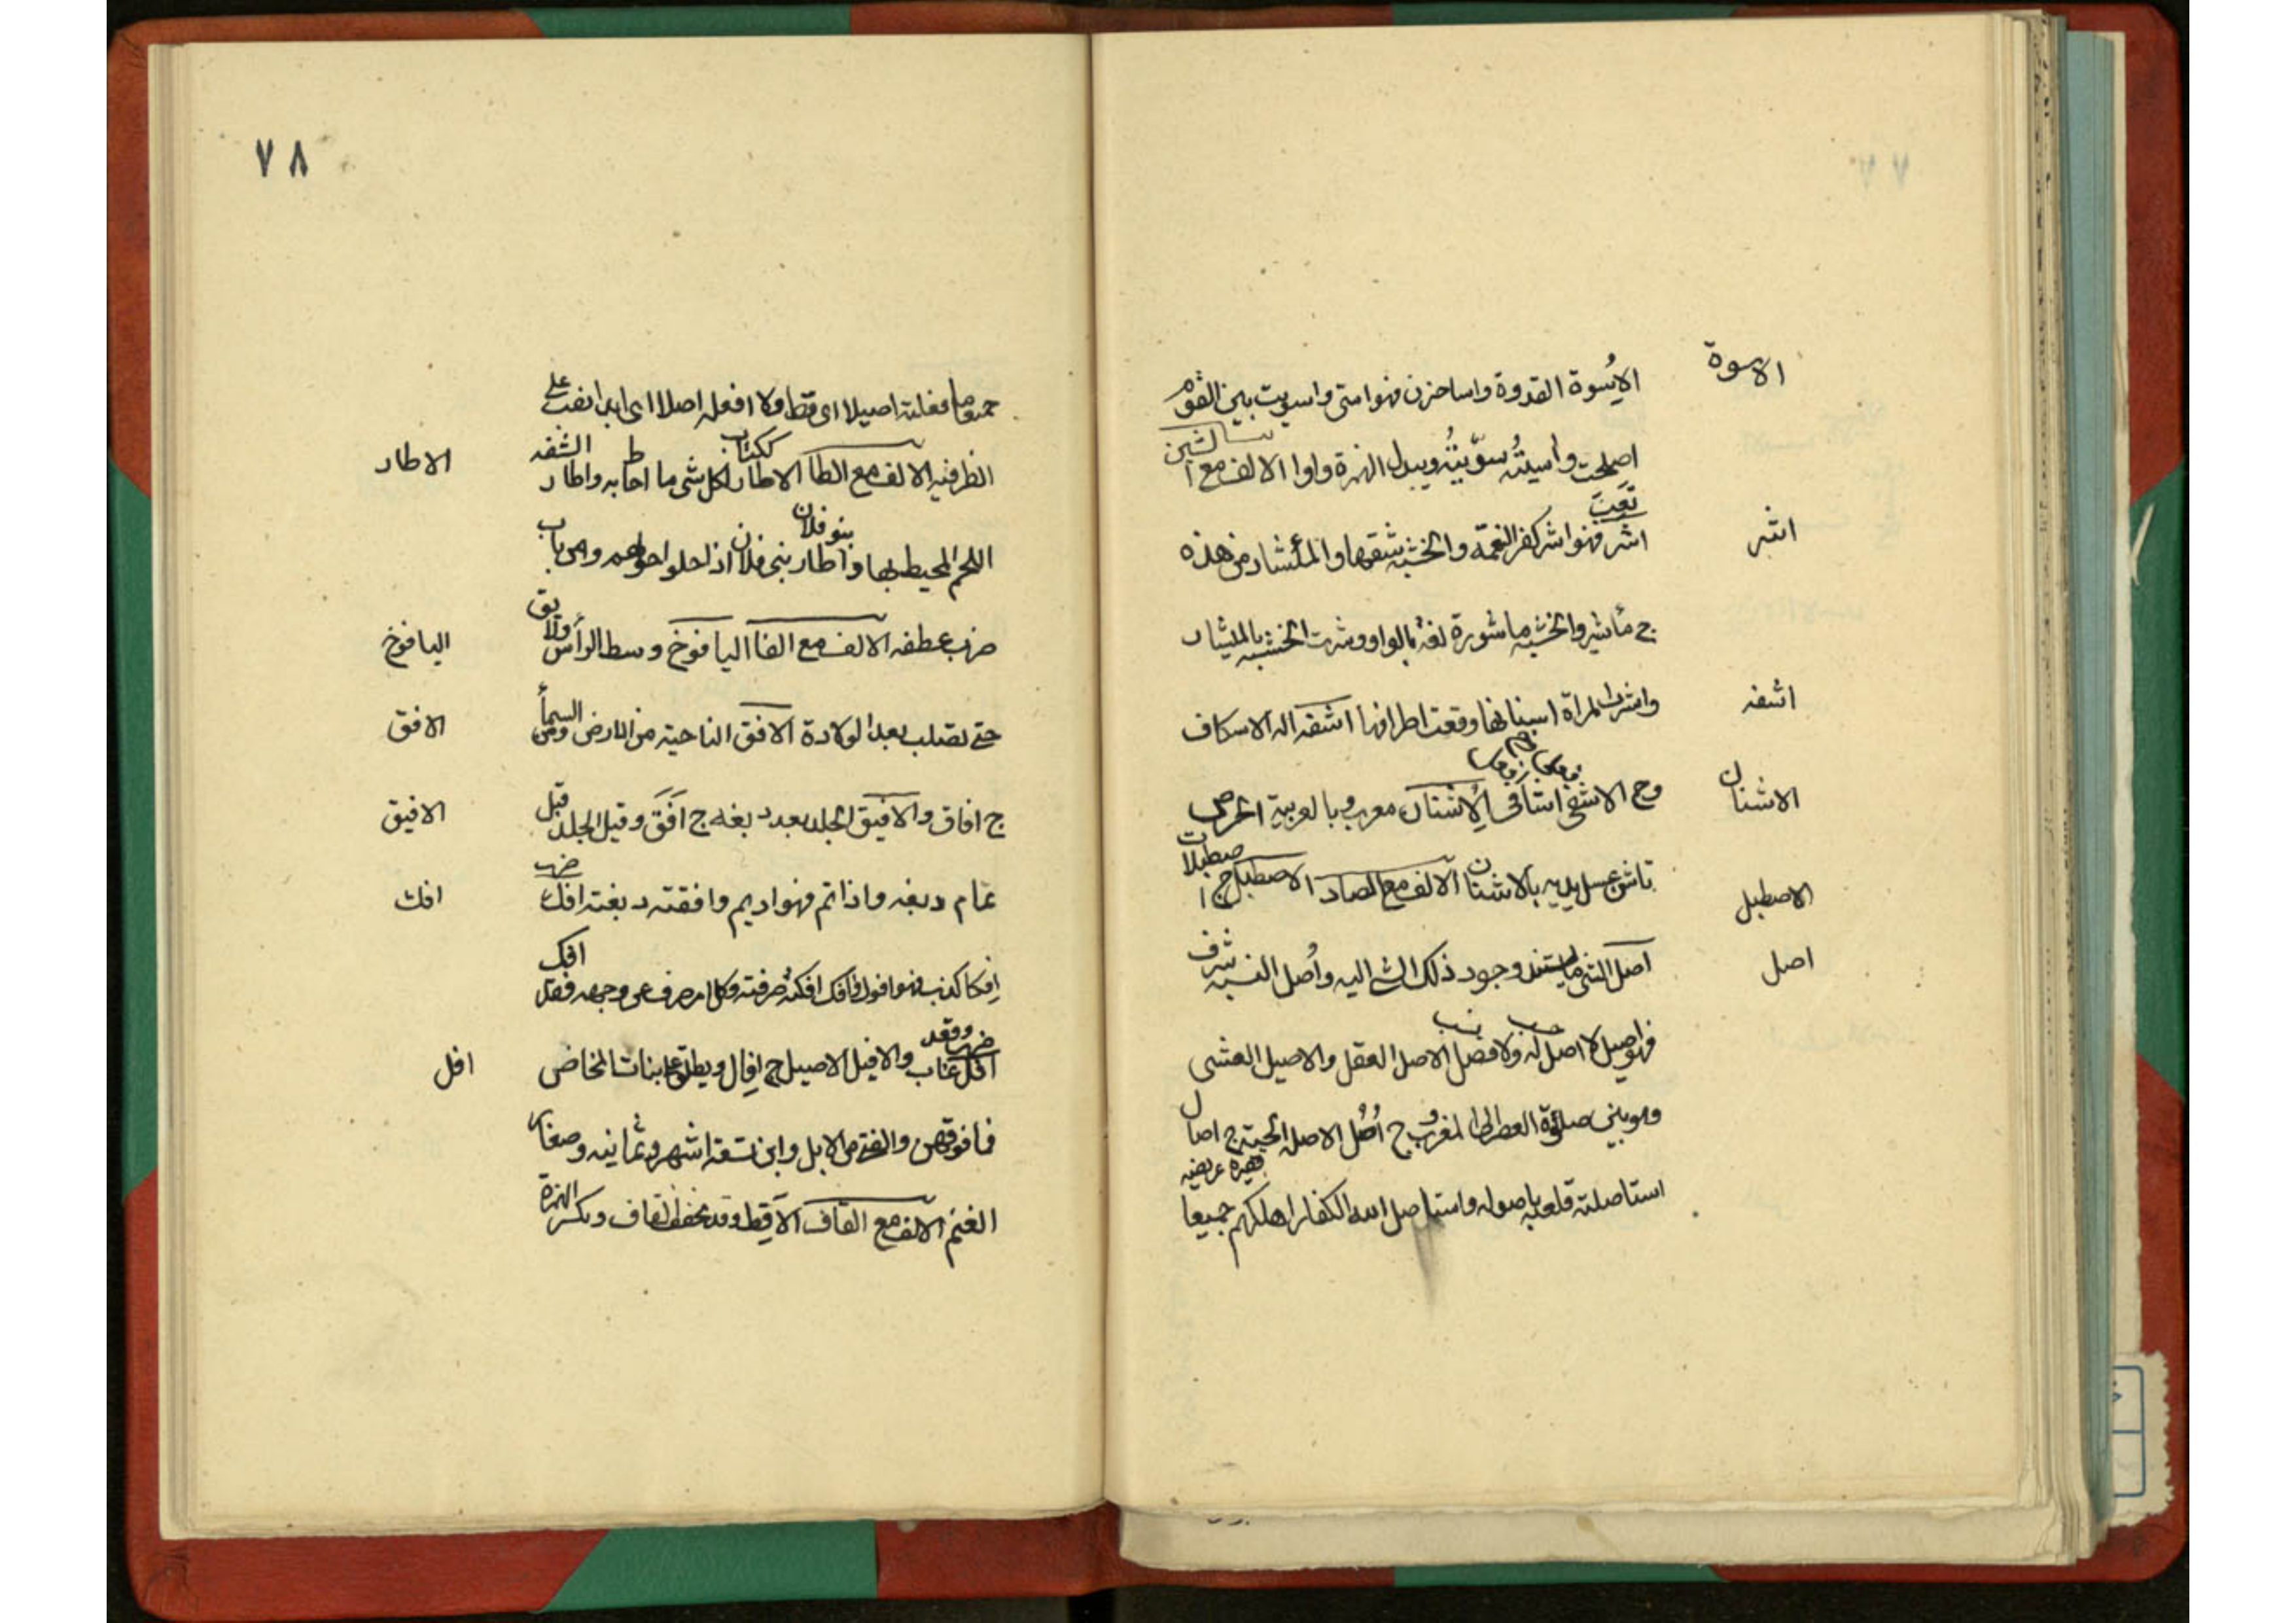 الاسوة
الأسوة القدوة واسا حزن فهو اسى واسويت بين القوم
اصلحت واسيته سوّيته ويبدل الهمزة واوا الالف مع الشين
اشر
تعب
اشر فهو اشر كفر النعمة والخشبه شقها والمأشار من هذه
ج مأشير والخشبه ماشورة لغة بالواو وشرت الخشبه بالميشار
اشفه
واشرت المراة اسنانها وقعت اطرافها اشفه اله الاسكاف
الاشنان
وج الاشفى اشافى الاشنان معرب وبالعربية الحرض
الاصطبل
تاشن غسل يديه بالاشنان الالف مع الصاد الاصطبل ج اصطبلات
اصل
اصل الشى ما يستند وجود ذلك الشى اليه وأصل النسب شرف
حسب نسب
فهو اصيل لا اصل له ولا فصل الاصل العقل والاصيل العشى
وهو بين صلوة العصر الى المغرب ج أُصُل الاصلة الحية ج اصال
قصيرة عريضه
استاصلته قلعه باصوله واستاصل الله الكفار اهلكهم جميعا
٧٨
جميعا وما فعلته اصيلا اى قط ولا افعله اصلا اى ابدا نصب على
الاطار
الظرفيه الالف مع الطا الاطار ككتاب لكل شى ما احاط به واطار الشفه
بنو فلان
اللحم المحيط بها واطار بنى فلان اذا حلوا حولهم ومن باب
اليافوخ
ضرب عطفه الالف مع الفا اليافوخ وسط الرأس ولا يق
الافق
حتى تصلب بعد الولادة الافق الناحية من الارض ومن السمأ
الافيق
ج افاق والافيق الجلد بعد دبغه ج افَق وقيل الجلد قبل
افك
تمام دبغه واذا تم فهو اديم وافقته دبغته افك ضرب
افك
اِفكا كذب فهو افوك وافاك افكته صرفته وكل امر صرف عن وجهه فقد
افل
ضرب وقعد
افل غاب والافيل الاصيل ج افال ويطلق على بنات المخاض
فما فوقهن والفتى من الابل وابن تسعة اشهر وثمانيه وصغار
الغنم الالف مع القاف الاقِط وقد يخفف القاف وبكسر الهمزة